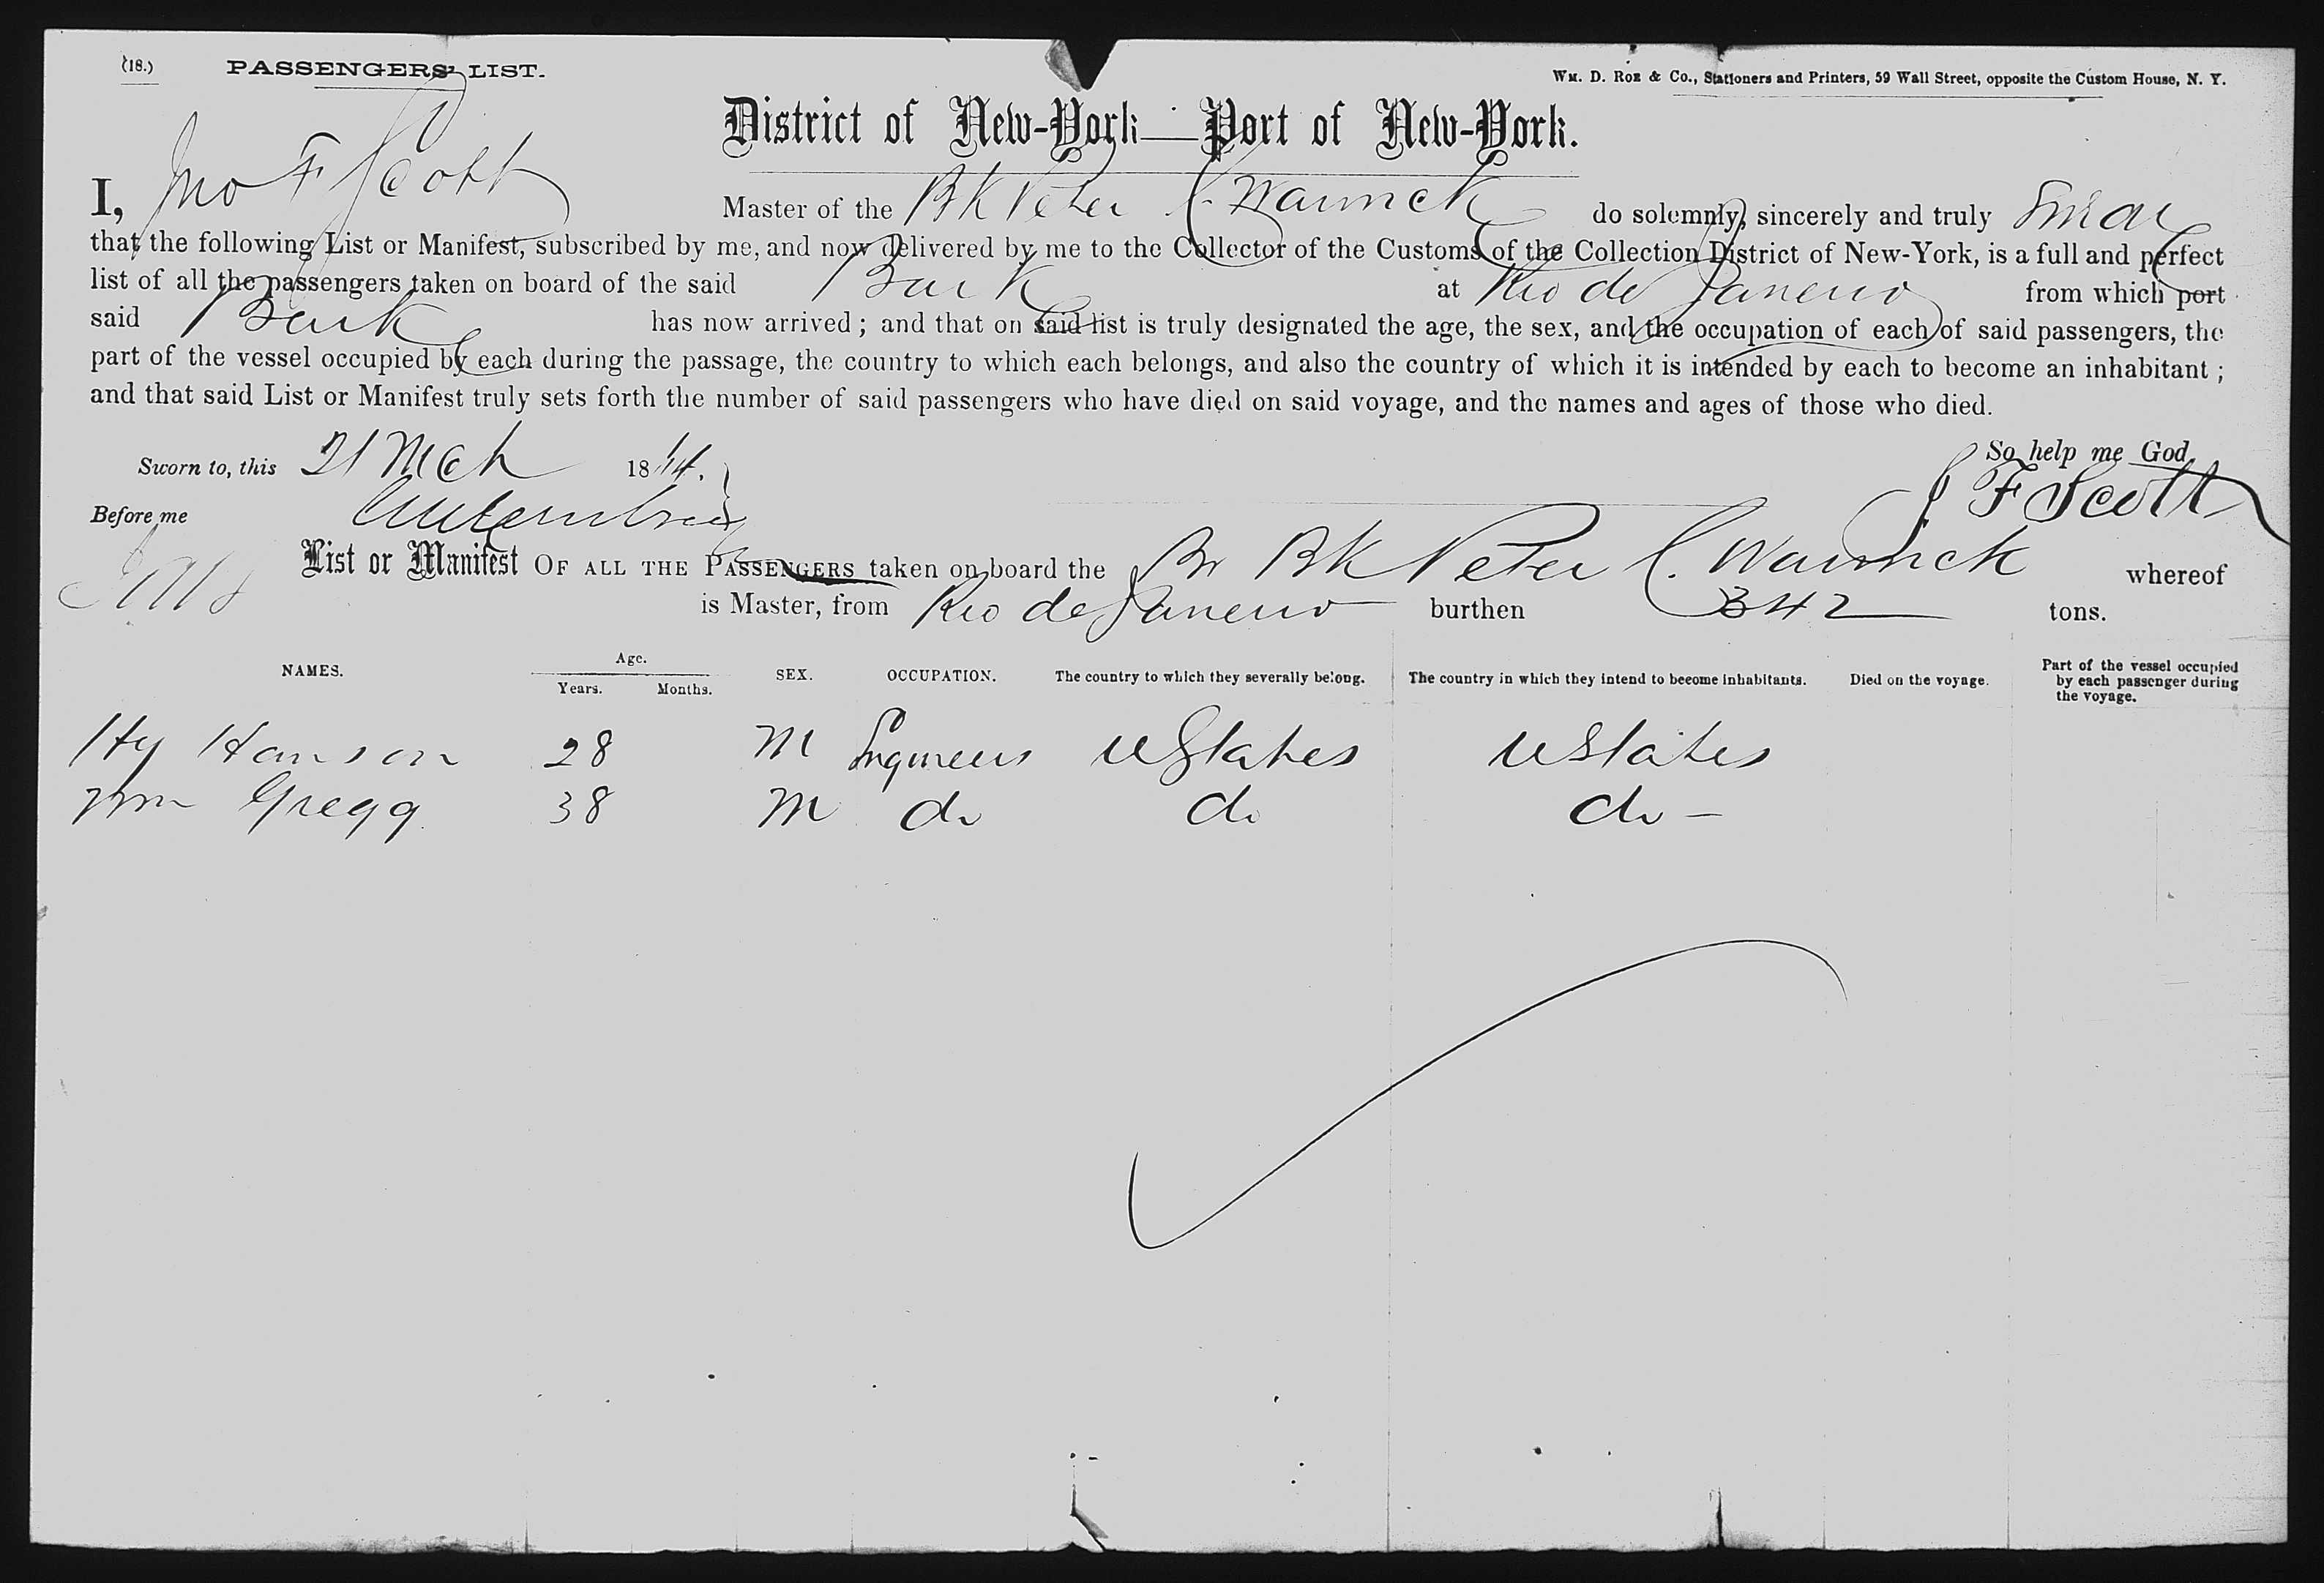 (18.) PASSENGERS' LIST.
Wm. D. Roe & Co., Stationers and Printers, 59 Wall Street, opposite the Custom House, N. Y.
District of New-York—Port of New-York.
I, Jno F Scott Master of the Bk Peter C. Warwick do solemnly, sincerely and truly Swear
that the following List or Manifest, subscribed by me, and now delivered by me to the Collector of the Customs of the Collection District of New-York, is a full and perfect
list of all the passengers taken on board of the said Bark at Rio de Janeiro from which port
said Bark has now arrived; and that on said list is truly designated the age, the sex, and the occupation of each of said passengers, the
part of the vessel occupied by each during the passage, the country to which each belongs, and also the country of which it is intended by each to become an inhabitant;
and that said List or Manifest truly sets forth the number of said passengers who have died on said voyage, and the names and ages of those who died.
So help me God.
Sworn to, this 21 Mch 18
J F Scott
Before me
List or Manifest OF ALL THE PASSENGERS taken on board the Br Bk Peter C. Warwick whereof
is Master, from Rio de Janeiro burthen 342 tons.
NAMES. Age. Years. Months. SEX. OCCUPATION. The country to which they severally belong. The country in which they intend to become inhabitants. Died on the voyage. Part of the vessel occupied by each passenger during the voyage.
Hy Hanson 28 M Engineers UStates UStates
Wm Gregg 38 M do do do —